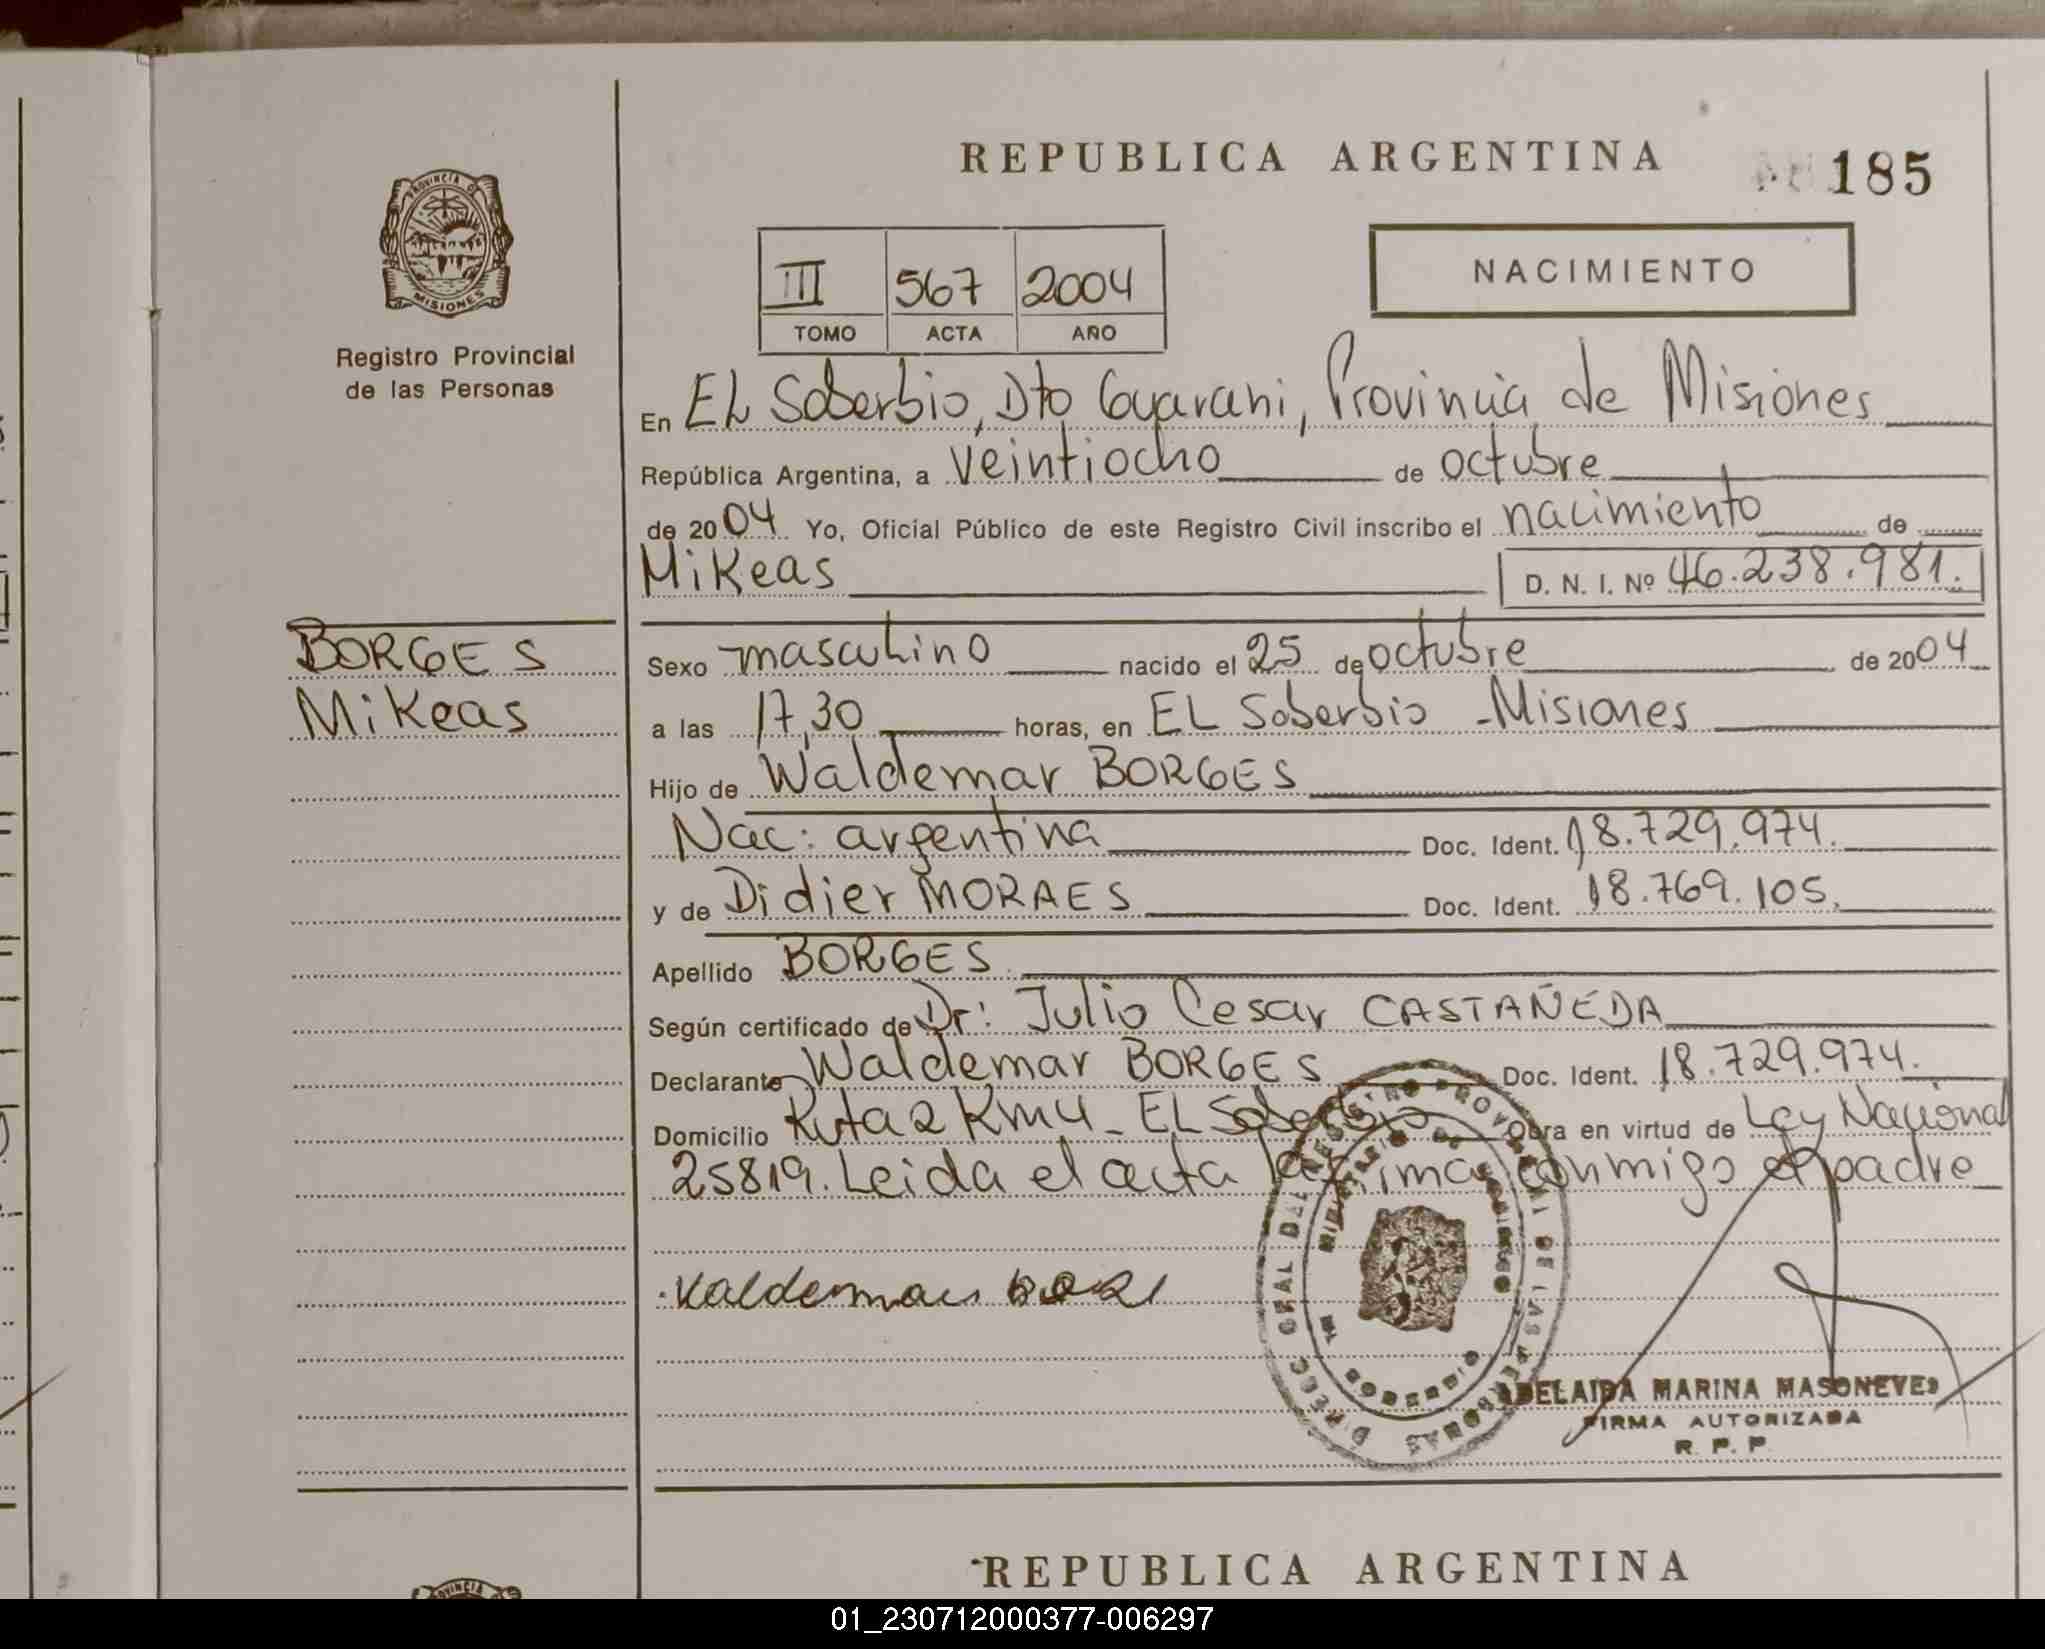 REPUBLICA ARGENTINA
185
PROVINCIA DE
MISIONES
Registro Provincial
de las Personas
III 567 2004
TOMO ACTA AÑO
NACIMIENTO
En EL Soberbio, Dto Guarani, Provincia de Misiones
República Argentina, a veintiocho de octubre
de 2004 Yo, Oficial Público de este Registro Civil inscribo el nacimiento de
Mikeas D. N. I. Nº 46.238.981.
BORGES
Mikeas
Sexo masculino nacido el 25 de octubre de 2004
a las 17,30 horas, en EL Soberbio - Misiones
Hijo de Waldemar BORGES
Nac: argentina Doc. Ident. 18.729.974.
y de Didier MORAES Doc. Ident. 18.769.105.
Apellido BORGES
Según certificado de Dr: Julio Cesar CASTAÑEDA
Declarante Waldemar BORGES Doc. Ident. 18.729.974.
Domicilio Ruta 2 Km 4 - EL Soberbio Obra en virtud de Ley Nacional
25819. Leida el acta la firma conmigo el padre
DIRECC GRAL DAL REGISTRO PROVINCIAL DE LAS PERSONAS
SOBERBIO
ADELAIDA MARINA MASONEVES
FIRMA AUTORIZADA
R. P. P.
REPUBLICA ARGENTINA
01_230712000377-006297